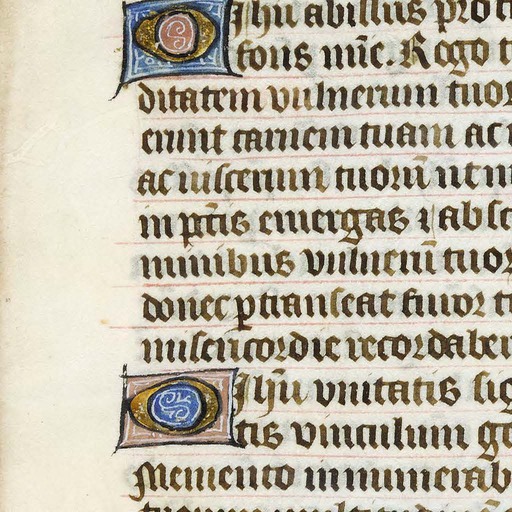 O Jhu abissus pro
fonis mie. Rogo t
ditatem vulnerum tuor
erunt carnem tuam ac
ac viscerum tuorū ut m
in pctīs emergas ⁊ absc
minibus vulnerū tuor
donec ptranseat furor t
misericordie recordaber
O Jhū vnitatis sig
tis vinculum
Memento innumerab